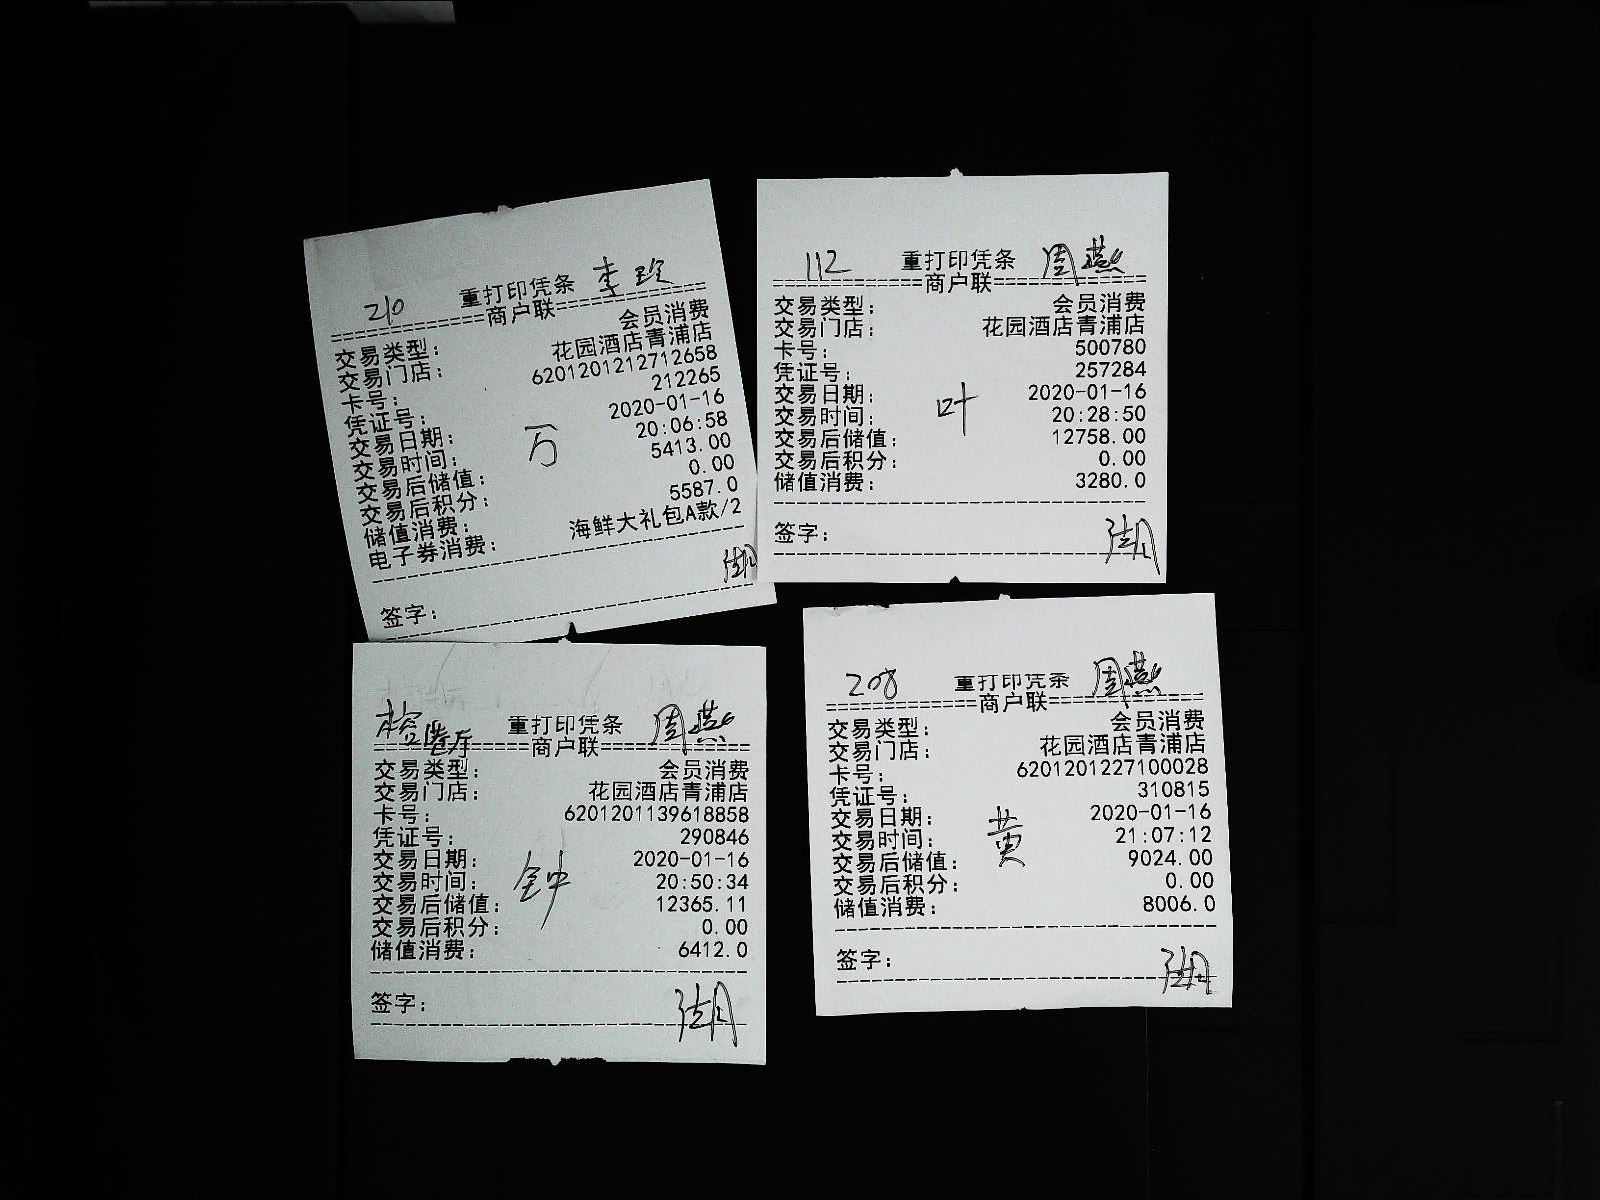 210 重打印凭条 李珍
商户联
交易类型： 会员消费
交易门店： 花园酒店青浦店
卡号： 6201201212712658
凭证号： 212265
交易日期： 2020-01-16
交易时间： 20:06:58
交易后储值： 5413.00
交易后积分： 0.00
储值消费： 5587.0
电子券消费： 海鲜大礼包A款/2
万
签字：
112 重打印凭条 周燕
商户联
交易类型： 会员消费
交易门店： 花园酒店青浦店
卡号： 500780
凭证号： 257284
交易日期： 2020-01-16
交易时间： 20:28:50
交易后储值： 12758.00
交易后积分： 0.00
储值消费： 3280.0
叶
签字：
重打印凭条 周燕
商户联
交易类型： 会员消费
交易门店： 花园酒店青浦店
卡号： 6201201139618858
凭证号： 290846
交易日期： 2020-01-16
交易时间： 20:50:34
交易后储值： 12365.11
交易后积分： 0.00
储值消费： 6412.0
钟
签字：
208 重打印凭条 周燕
商户联
交易类型： 会员消费
交易门店： 花园酒店青浦店
卡号： 6201201227100028
凭证号： 310815
交易日期： 2020-01-16
交易时间： 21:07:12
交易后储值： 9024.00
交易后积分： 0.00
储值消费： 8006.0
黄
签字：